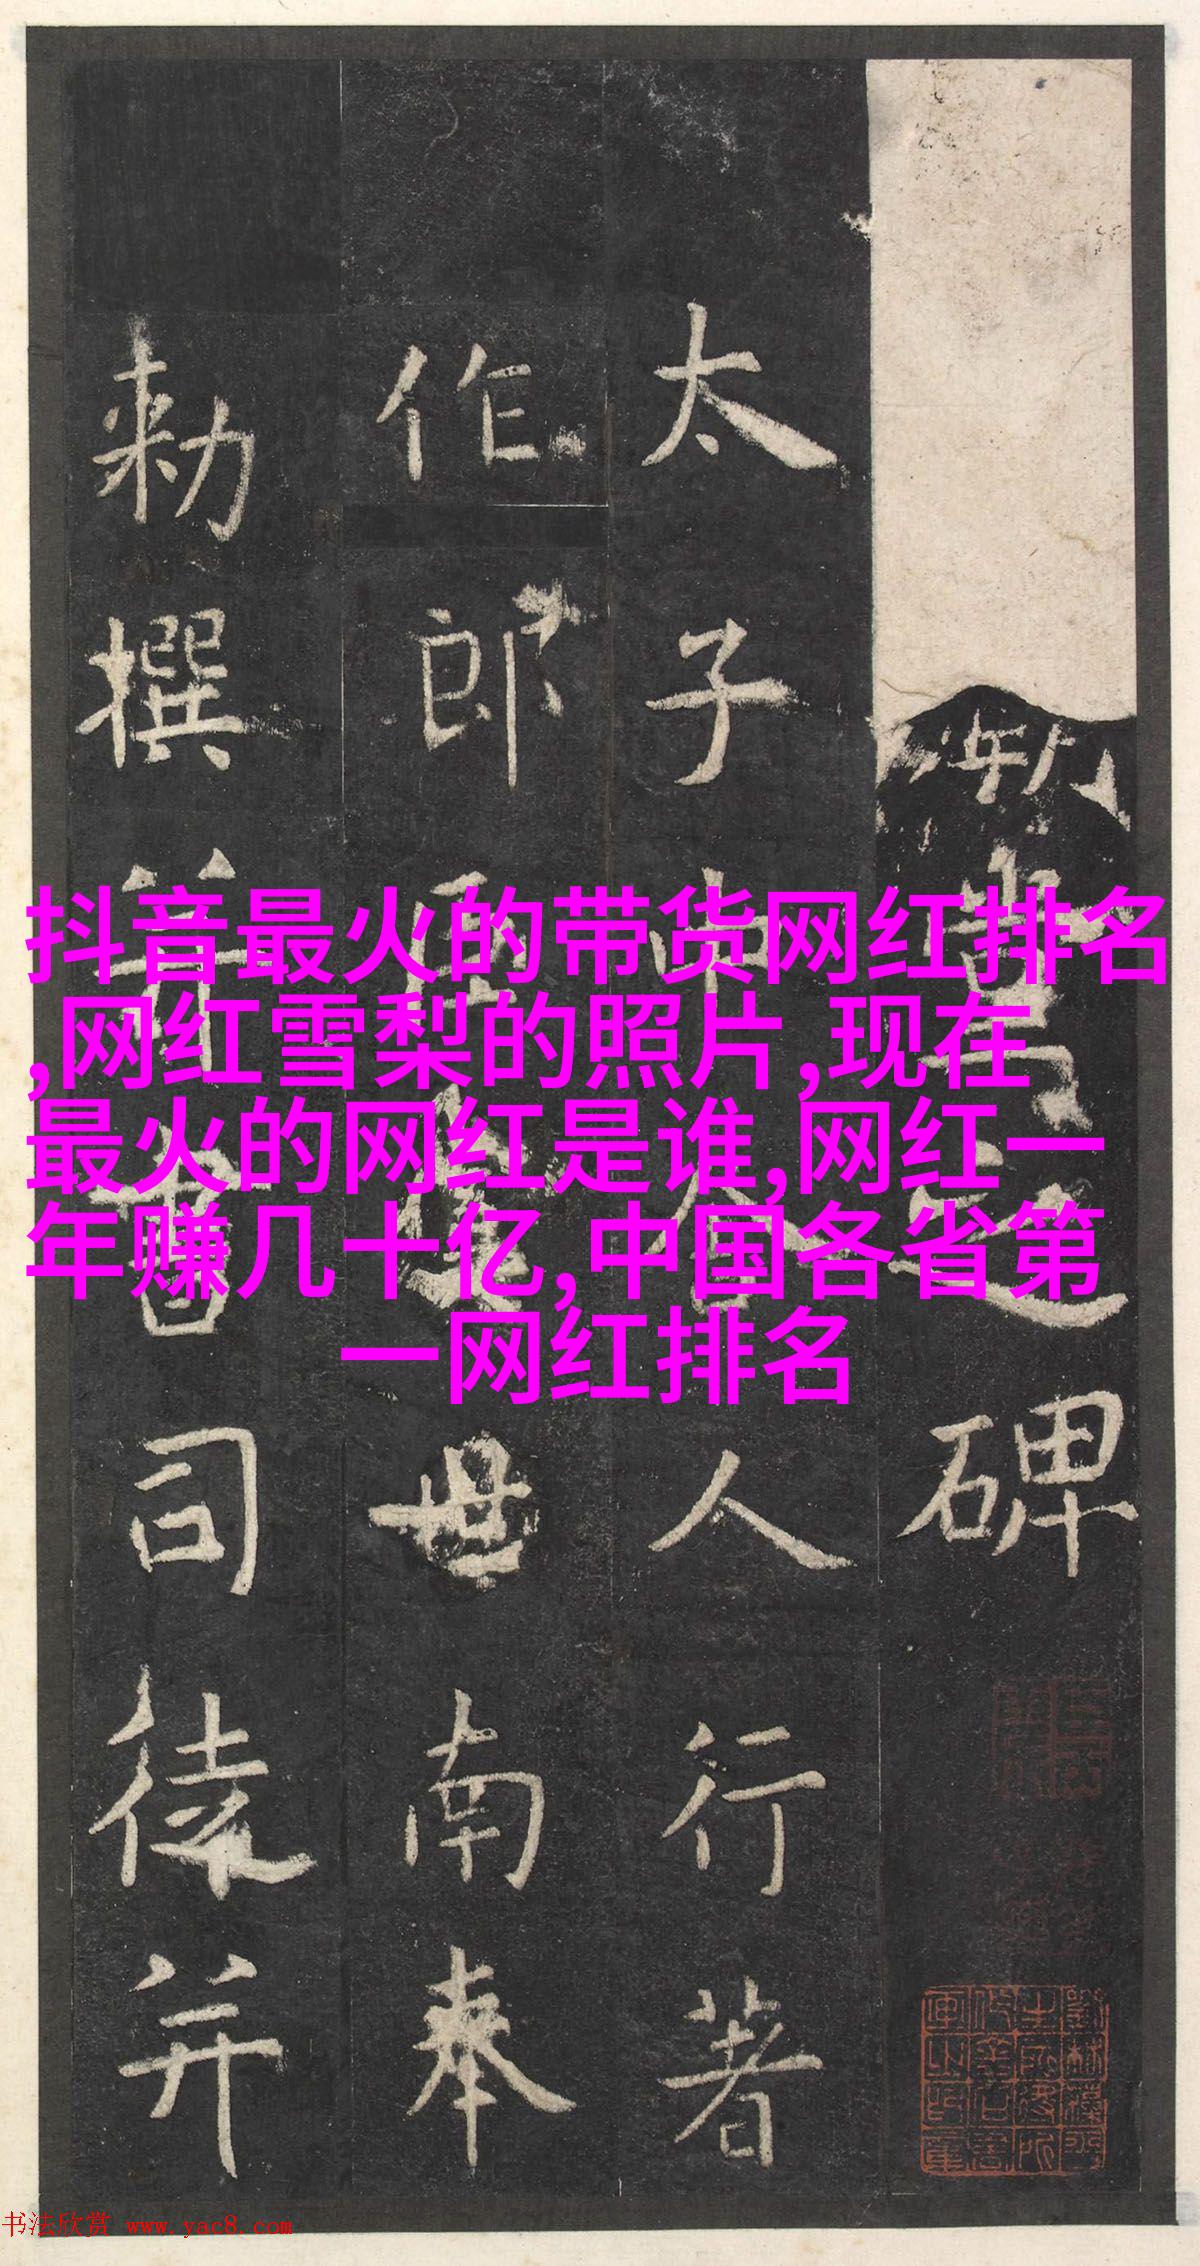 堂之碑
太子中舍人行著
作郎臣虞世南奉
勅撰并書司徒并
抖音最火的带货网红排名
,网红雪梨的照片,现在
最火的网红是谁,网红一
年赚几十亿,中国各省第
一网红排名
书法欣赏 www.yac8.com